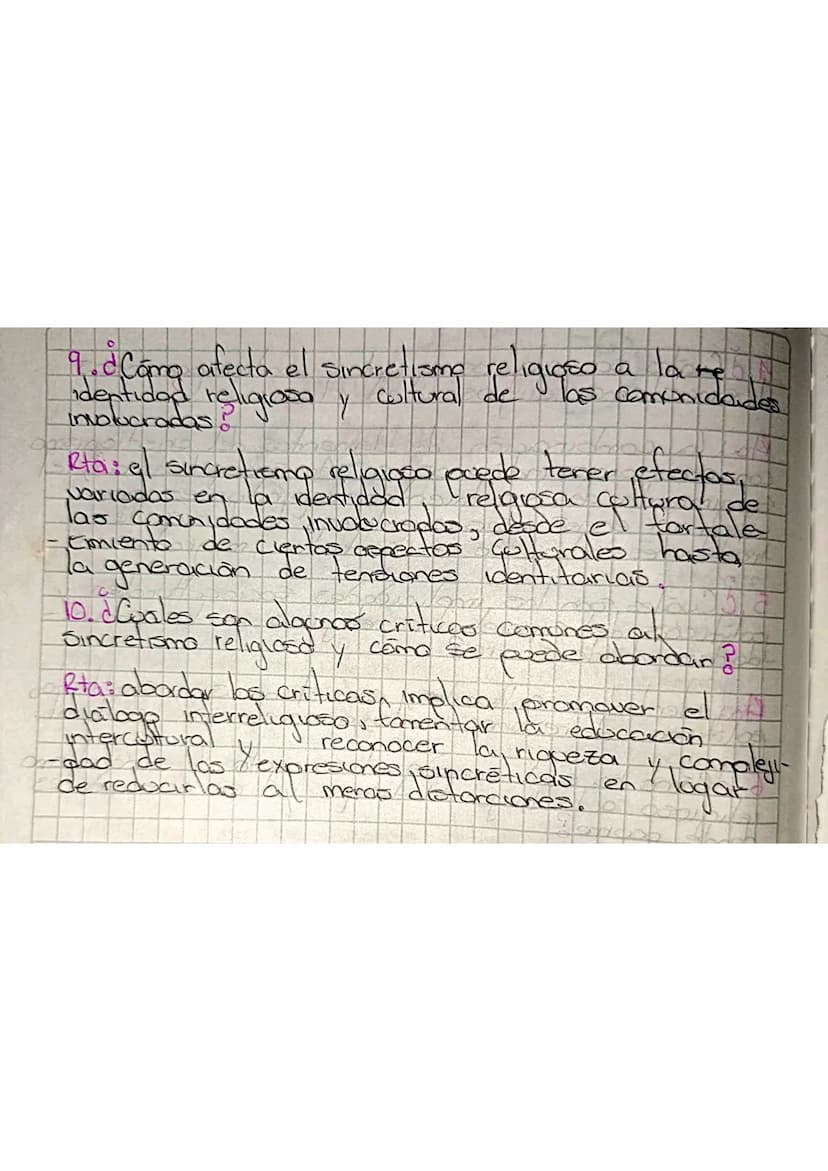 9. ¿Cómo afecta el sincretismo religioso a la re
identidad religiosa y cultural de las comunidades
involucradas?
Rta: el sincretismo religioso puede tener efectos
variados en la identidad religiosa cultural de
las comunidades involucradas, desde el fortale
-cimiento de ciertos aspectos culturales hasta
la generación de tensiones identitarias.
10. ¿Cuales son algunas criticas comunes al
sincretismo religioso y cómo se puede abordar?
Rta: abordar las críticas, implica promover el
diálogo interreligioso, fomentar la educación
intercultural y reconocer la riqueza y compleji-
-dad de las expresiones sincréticas en lugar
de reducirlas al meras distorciones.